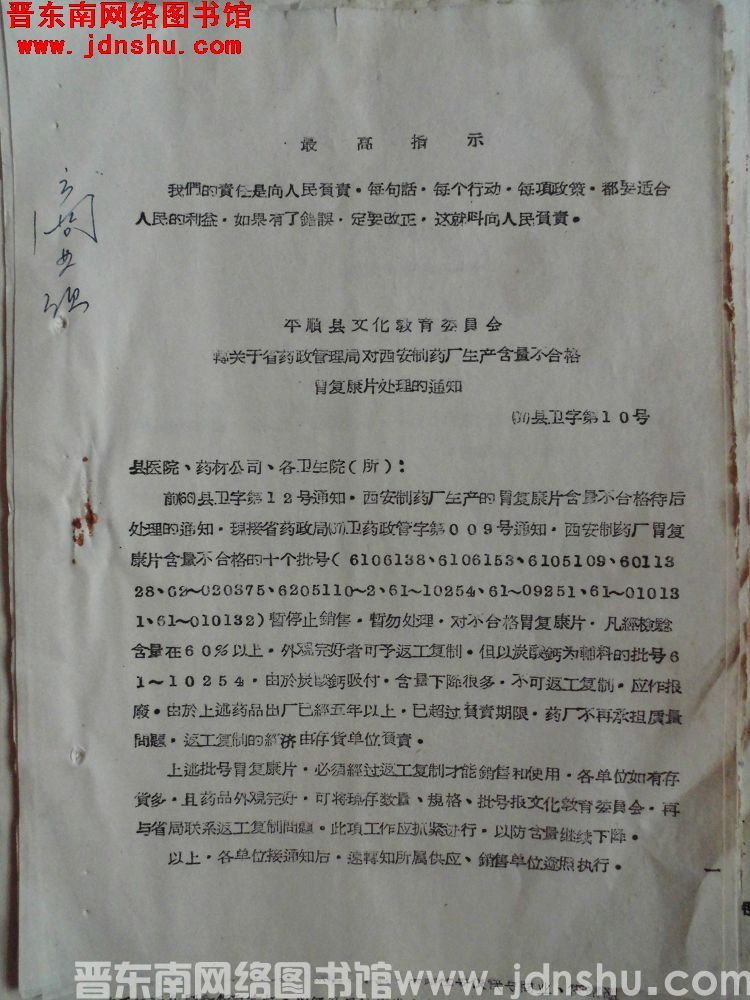 晋东南网络图书馆
www.jdnshu.com
最高指示
我們的責任是向人民負責·每句話·每个行动·每項政策·都要适合
人民的利益·如果有了錯誤·定要改正·这就叫向人民負責。
平順县文化教育委員会
轉关于省药政管理局对西安制药厂生产含量不合格
胃复康片处理的通知
县卫字第10号
县医院、药材公司、各卫生院（所）：
前(66)县卫字第12号通知·西安制药厂生产的胃复康片含量不合格待后
处理的通知·現接省药政局(67)卫药政管字第009号通知·西安制药厂胃复
康片含量不合格的十个批号（6106138、6106153、6105109、60113
28、62～020375、6205110～2、61～10254、61～09251、61～01013
1、61～010132）暫停止銷售·暫勿处理·对不合格胃复康片·凡經檢驗
含量在60%以上·外观完好者可予返工复制·但以炭酸鈣为輔料的批号6
1～10254·由於炭酸鈣吸付·含量下降很多·不可返工复制·应作报
廢·由於上述药品出厂已經五年以上·已超过負責期限·药厂不再承担质量
問題·返工复制的經济由存貨单位負責。
上述批号胃复康片·必須經过返工复制才能銷售和使用·各单位如有存
貨多·且药品外观完好·可将現存数量、規格、批号报文化教育委員会·再
与省局联系返工复制問題。此項工作应抓紧进行·以防含量继续下降。
以上·各单位接通知后·速轉知所属供应、銷售单位遵照执行。
晋东南网络图书馆 www.jdnshu.com